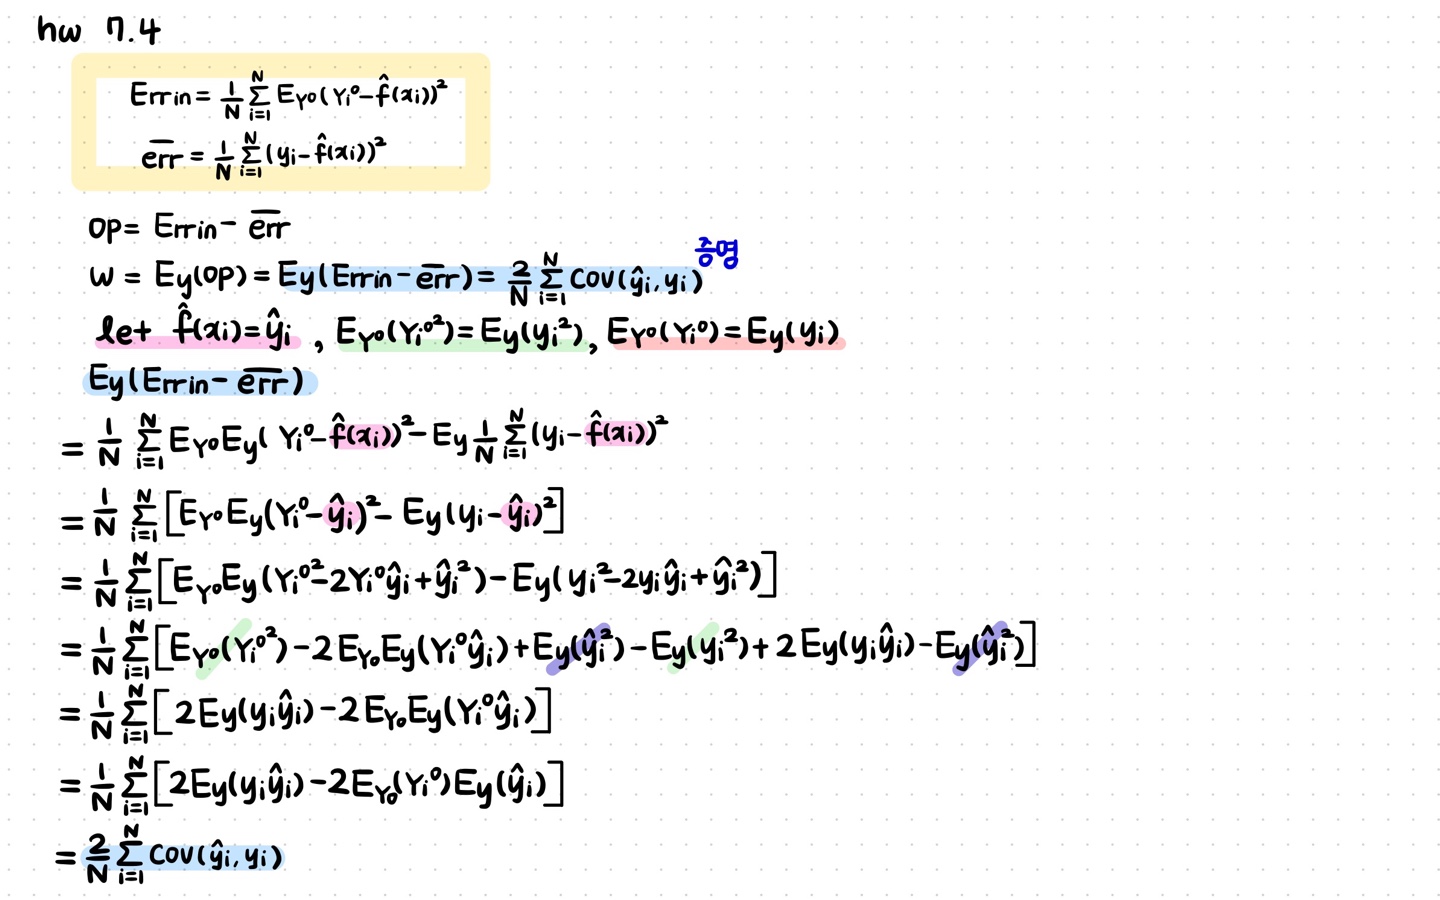 hw 7.4
Errin = 1/N Σ_{i=1}^{N} E_{Y⁰}(Y_i⁰ − f̂(x_i))²
e̅r̅r̅ = 1/N Σ_{i=1}^{N} (y_i − f̂(x_i))²
op = Errin − e̅r̅r̅
증명
w = E_y(op) = E_y(Errin − e̅r̅r̅) = 2/N Σ_{i=1}^{N} COV(ŷ_i, y_i)
let f̂(x_i) = ŷ_i , E_{Y⁰}(Y_i⁰²) = E_y(y_i²), E_{Y⁰}(Y_i⁰) = E_y(y_i)
E_y(Errin − e̅r̅r̅)
= 1/N Σ_{i=1}^{N} E_{Y⁰}E_y( Y_i⁰ − f̂(x_i))² − E_y 1/N Σ_{i=1}^{N} (y_i − f̂(x_i))²
= 1/N Σ_{i=1}^{N} [E_{Y⁰}E_y(Y_i⁰ − ŷ_i)² − E_y(y_i − ŷ_i)²]
= 1/N Σ_{i=1}^{N} [E_{Y⁰}E_y(Y_i⁰² − 2Y_i⁰ŷ_i + ŷ_i²) − E_y(y_i² − 2y_iŷ_i + ŷ_i²)]
= 1/N Σ_{i=1}^{N} [E_{Y⁰}(Y_i⁰²) − 2E_{Y₀}E_y(Y_i⁰ŷ_i) + E_y(ŷ_i²) − E_y(y_i²) + 2E_y(y_iŷ_i) − E_y(ŷ_i²)]
= 1/N Σ_{i=1}^{N} [2E_y(y_iŷ_i) − 2E_{Y₀}E_y(Y_i⁰ŷ_i)]
= 1/N Σ_{i=1}^{N} [2E_y(y_iŷ_i) − 2E_{Y₀}(Y_i⁰)E_y(ŷ_i)]
= 2/N Σ_{i=1}^{N} COV(ŷ_i, y_i)